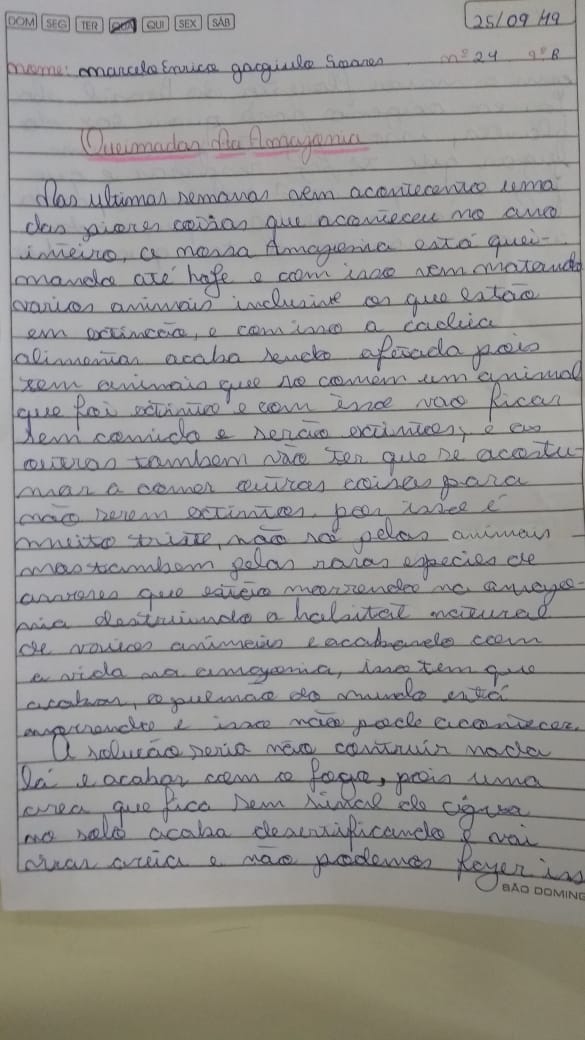 DOM SEG TER QUA QUI SEX SÁB
25/09/19
nome: Marcelo Enrico Soares nº 24 9º B
Queimadas Na Amazonia
Nas ultimas semanas vem acontecendo uma
das piores coisas que aconteceu no ano
inteiro, a nossa Amazonia está quei-
mando até hoje e com isso vem matando
varios animais inclusive os que estão
em extinção, e com isso a cadeia
alimentar acaba sendo afetada pois
tem animais que so comem um animal
que foi extinto e com isso vao ficar
sem comida e serão extintos, e os
outros tambem vão ter que se acostu-
mar a comer outras coisas para
não serem extintos, por isso é
muito triste, não só pelos animais
mas tambem pelas raras especies de
arvores que estão morrendo na amazo-
nia destruindo a habitat natural
de varios animais e acabando com
a vida na amazonia, isso tem que
acabar, o pulmão do mundo está
morrendo e isso não pode acontecer.
A solução seria não construir nada
lá e acabar com o fogo, pois uma
area que fica sem sinal de água
no solo acaba desertificando e vai
virar areia e não podemos fazer iss
BÃO DOMING